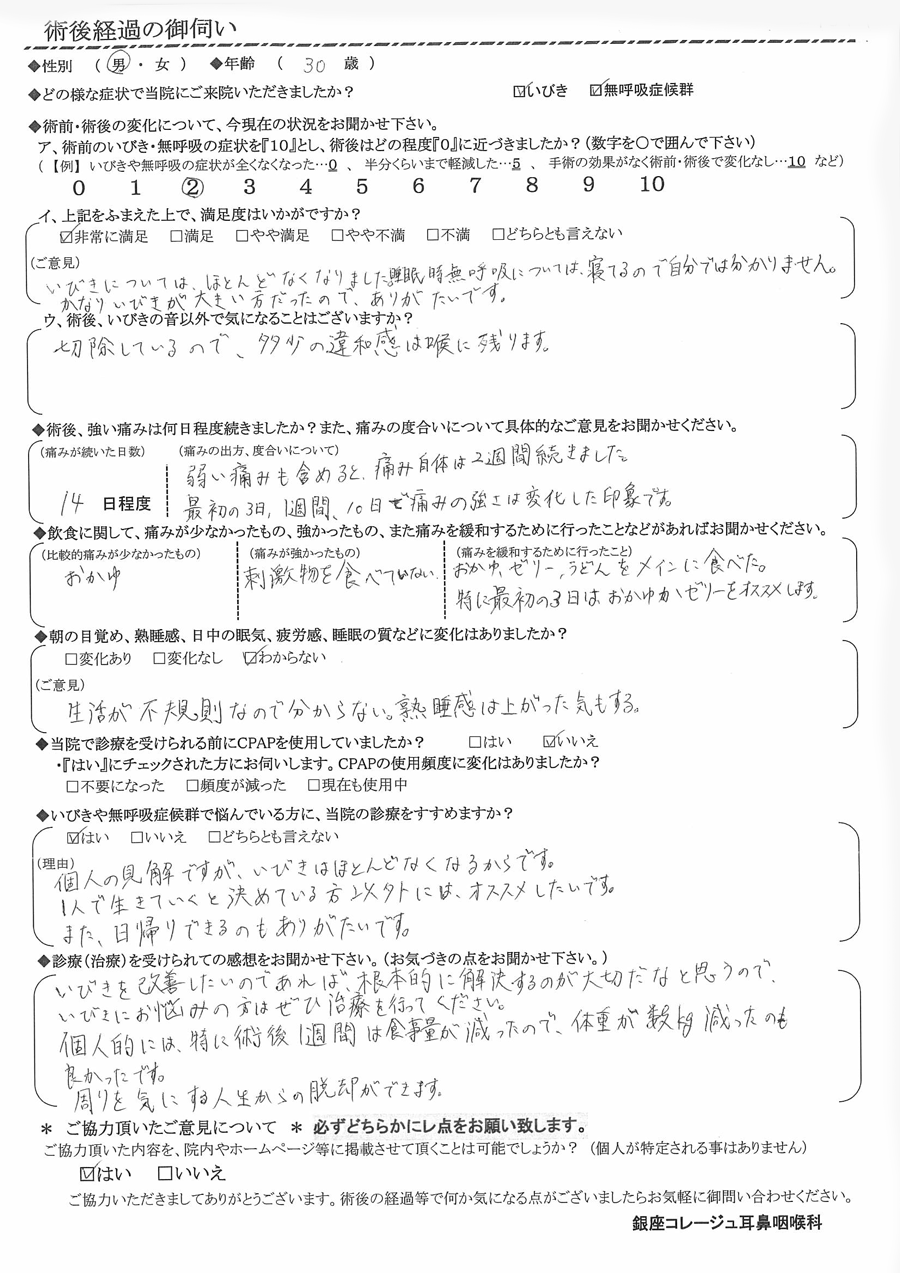 術後経過の御伺い
◆性別 （ 男 ・ 女 ） ◆年齢 （ 30 歳 ）
◆どの様な症状で当院にご来院いただきましたか？ ☑いびき ☑無呼吸症候群
◆術前・術後の変化について、今現在の状況をお聞かせ下さい。
ア、術前のいびき・無呼吸の症状を『10』とし、術後はどの程度『0』に近づきましたか？（数字を〇で囲んで下さい）
（【例】 いびきや無呼吸の症状が全くなくなった…0 、 半分くらいまで軽減した…5 、 手術の効果がなく術前・術後で変化なし…10 など）
0 1 ② 3 4 5 6 7 8 9 10
イ、上記をふまえた上で、満足度はいかがですか？
☑非常に満足 □満足 □やや満足 □やや不満 □不満 □どちらとも言えない
（ご意見）
いびきについては、ほとんどなくなりました。睡眠時無呼吸については、寝てるので自分では分かりません。
かなりいびきが大きい方だったので、ありがたいです。
ウ、術後、いびきの音以外で気になることはございますか？
切除しているので、多少の違和感は喉に残ります。
◆術後、強い痛みは何日程度続きましたか？また、痛みの度合いについて具体的なご意見をお聞かせください。
（痛みが続いた日数） （痛みの出方、度合いについて）
弱い痛みも含めると、痛み自体は2週間続きました。
14 日程度 最初の3日、1週間、10日で痛みの強さは変化した印象です。
◆飲食に関して、痛みが少なかったもの、強かったもの、また痛みを緩和するために行ったことなどがあればお聞かせください。
（比較的痛みが少なかったもの） （痛みが強かったもの） （痛みを緩和するために行ったこと）
おかゆ 刺激物を食べていない。 おかゆ、ゼリー、うどんをメインに食べた。
特に最初の3日は、おかゆかゼリーをオススメします。
◆朝の目覚め、熟睡感、日中の眠気、疲労感、睡眠の質などに変化はありましたか？
□変化あり □変化なし ☑わからない
（ご意見）
生活が不規則なので分からない。熟睡感は上がった気もする。
◆当院で診療を受けられる前にCPAPを使用していましたか？ □はい ☑いいえ
・『はい』にチェックされた方にお伺いします。CPAPの使用頻度に変化はありましたか？
□不要になった □頻度が減った □現在も使用中
◆いびきや無呼吸症候群で悩んでいる方に、当院の診療をすすめますか？
☑はい □いいえ □どちらとも言えない
（理由）
個人の見解ですが、いびきはほとんどなくなるからです。
1人で生きていくと決めている方以外には、オススメしたいです。
また、日帰りできるのもありがたいです。
◆診療（治療）を受けられての感想をお聞かせ下さい。（お気づきの点をお聞かせ下さい。）
いびきを改善したいのであれば、根本的に解決するのが大切だなと思うので、
いびきにお悩みの方はぜひ治療を行ってください。
個人的には、特に術後1週間は食事量が減ったので、体重が数kg減ったのも
良かったです。
周りを気にする人生からの脱却ができます。
＊ ご協力頂いたご意見について ＊ 必ずどちらかにレ点をお願い致します。
ご協力頂いた内容を、院内やホームページ等に掲載させて頂くことは可能でしょうか？ （個人が特定される事はありません）
☑はい □いいえ
ご協力いただきましてありがとうございます。術後の経過等で何か気になる点がございましたらお気軽に御問い合わせください。
銀座コレージュ耳鼻咽喉科